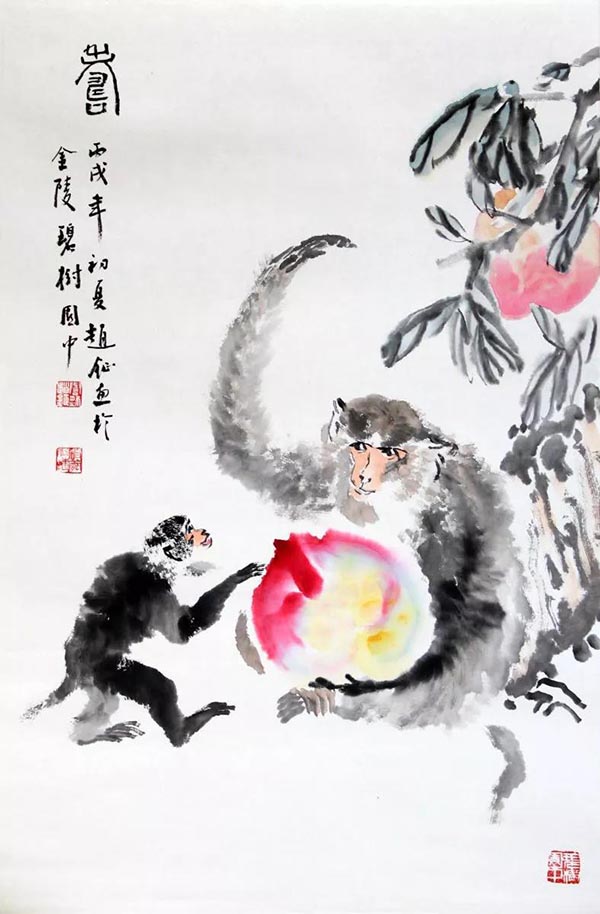 壽
丙戌年初夏趙钲画於
金陵碧樹園中